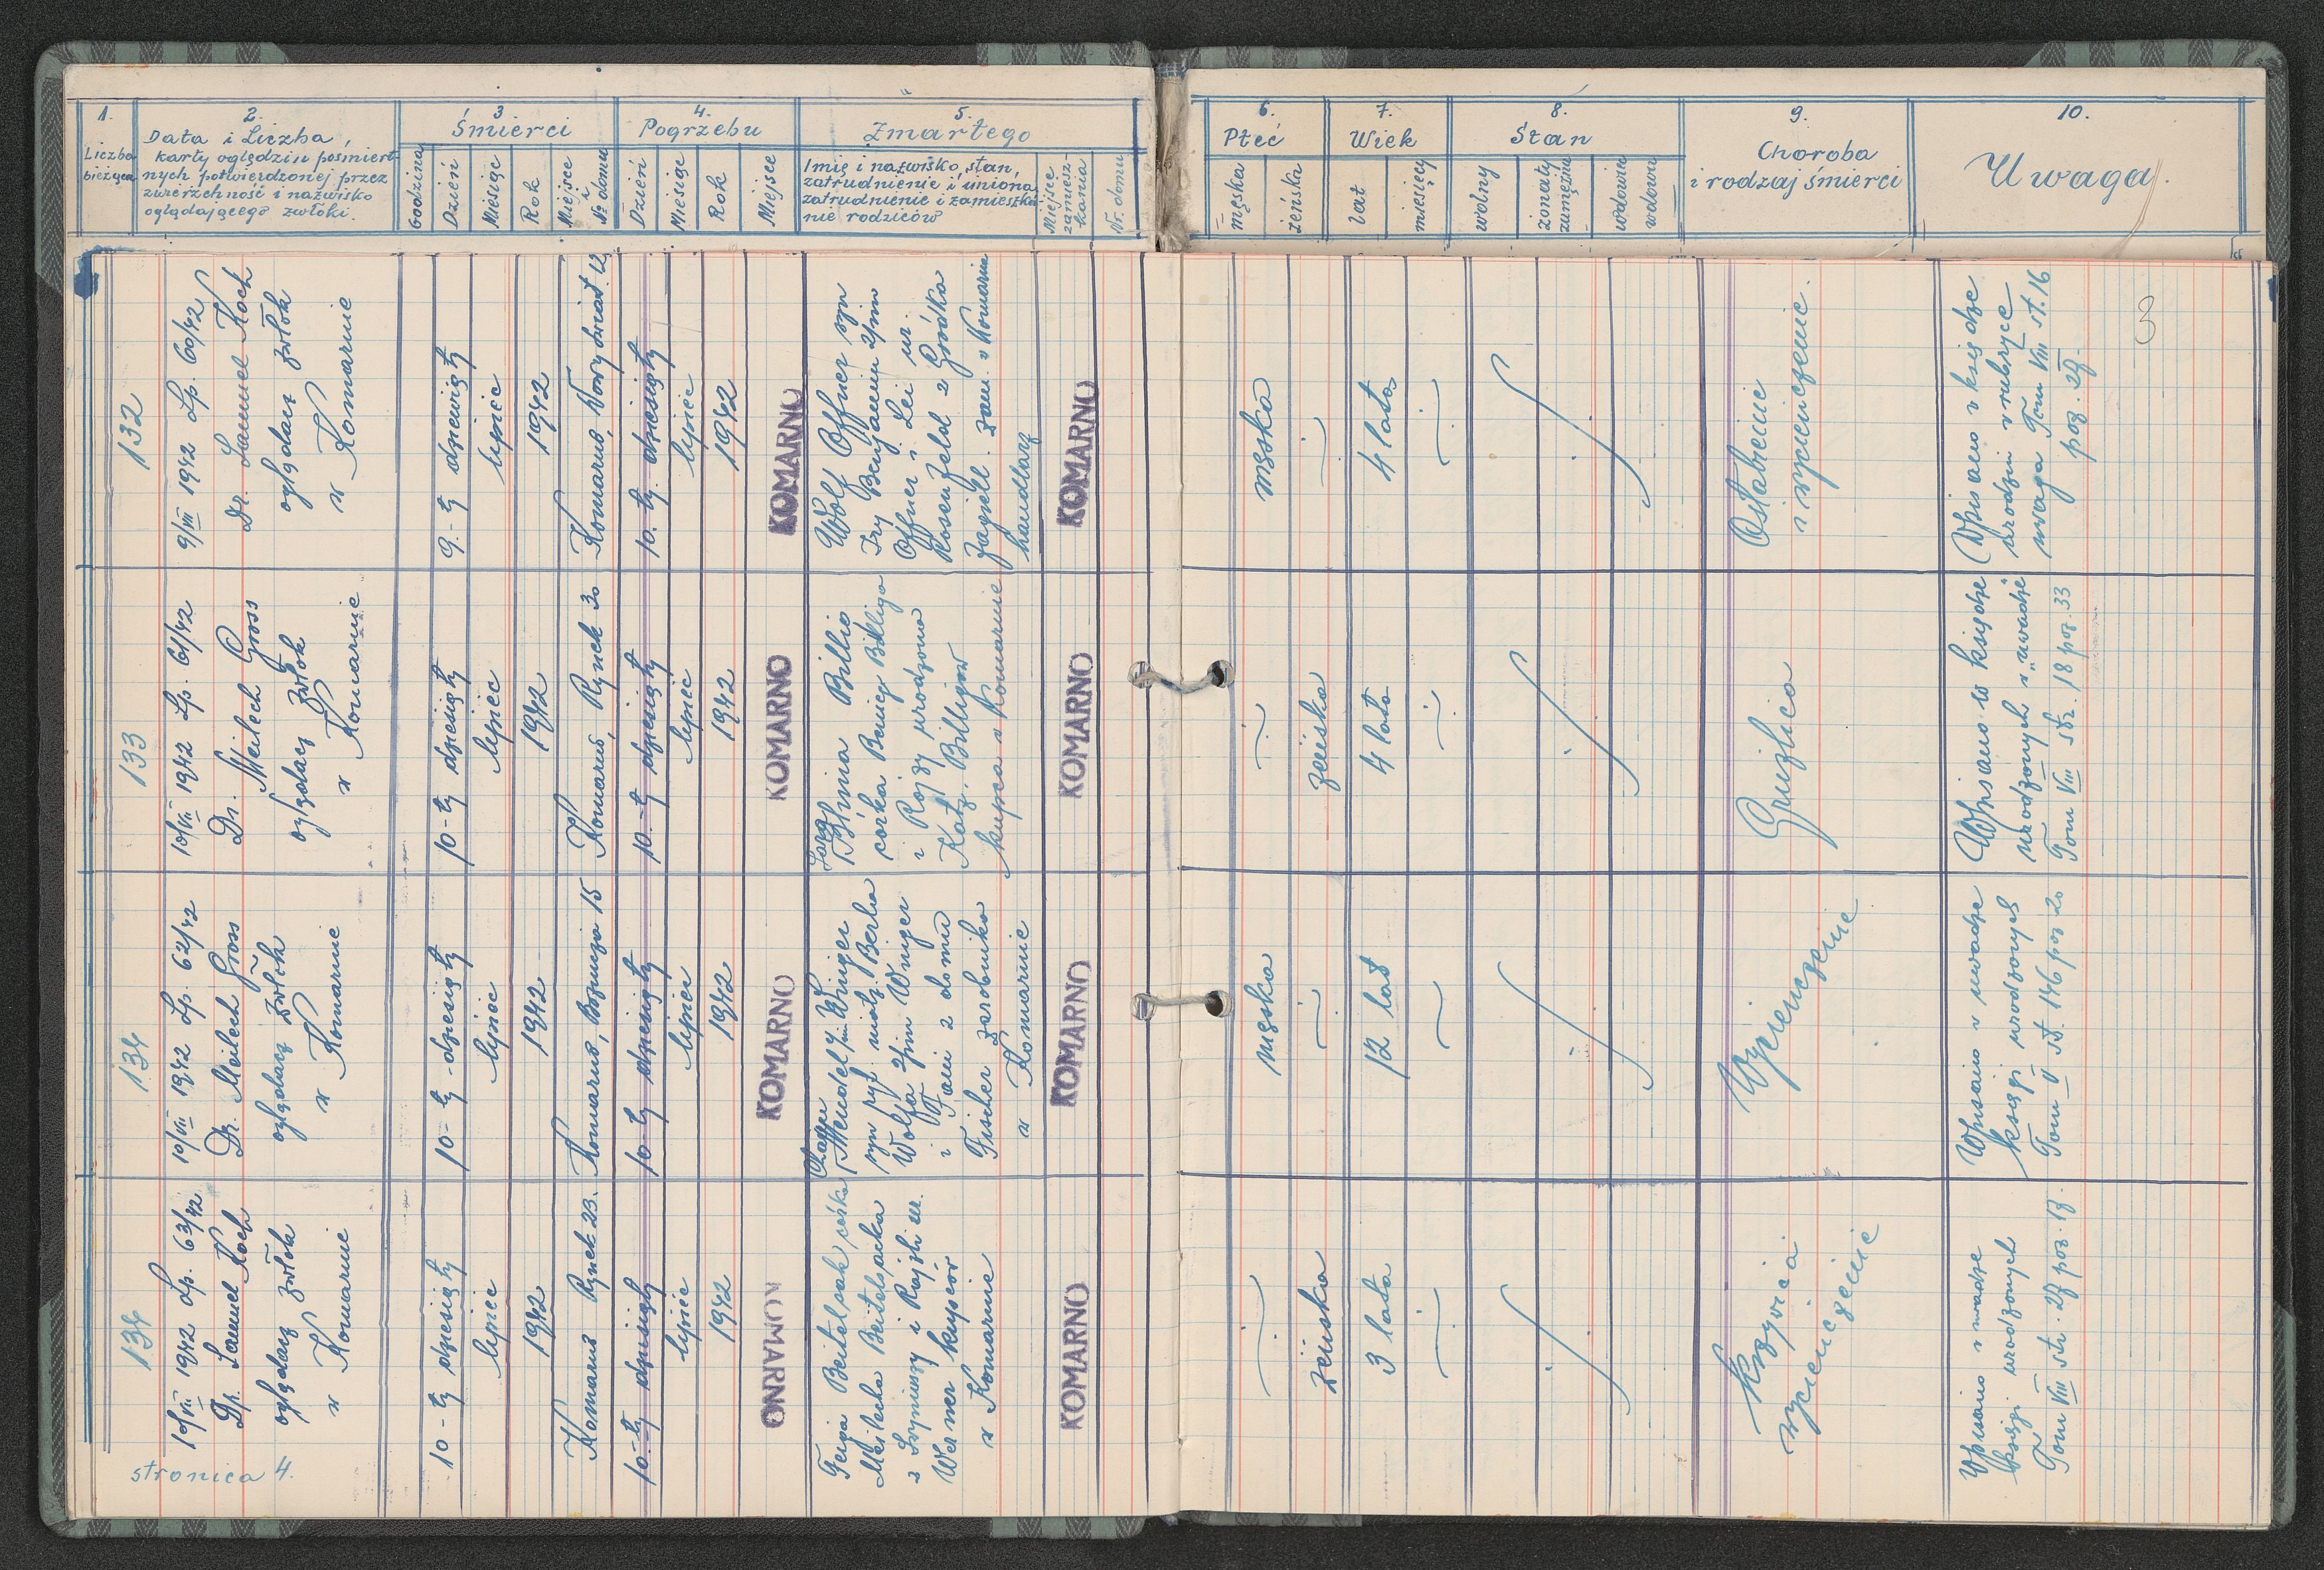 1.
Liczba
bieżąca
2.
Data i Liczba,
karty oględzin pośmiert-
nych potwierdzonej przez
zwierzchność i nazwisko
oglądającego zwłoki.
3
Śmierci
Godzina
Dzień
Miesiąc
Rok
Miejsce
i
№ domu
4.
Pogrzebu
Dzień
Miesiąc
Rok
Miejsce
5.
Zmarłego
Imię i nazwisko, stan,
zatrudnienie i imiona,
zatrudnienie i zamieszka-
nie rodziców
Miejsce
zamiesz-
kania
Nr. domu
6.
Płeć
męska
żeńska
7.
Wiek
lat
miesięcy
8.
Stan
wolny
żonaty
zamężna
wdowiec
wdowa
9.
Choroba
i rodzaj śmierci
10.
Uwaga.
132
9/VII 1942 Lp. 60/42
Dr. Samuel Koch
oglądacz zwłok
w Komarnie
9.-ty dziewiąty
lipiec
1942
Komarno, Nowy Świat 12
10.-ty dziesiąty
lipiec
1942
KOMARNO
Wolf Offner syn
Izy Benjamin 2/im
Offner i Lei ur.
Rosenfeld z Gródka
Jagiell. zam. w Komarnie
handlarz
KOMARNO
męska
4 lata
Osłabienie
i wycieńczenie.
Wpisano w księdze
urodzin w rubryce
uwaga Tom VIII st. 16
poz. 27.
3
133
10/VII 1942 Lp. 61/42
Dr. Meilech Gross
oglądacz zwłok
w Komarnie
10-ty dziesiąty
lipiec
1942
Komarno, Rynek 30
10.-ty dziesiąty
lipiec
1942
KOMARNO
Sara
Blima Billig
córka Billiga
i Rózy urodzona
Katz. Billigów
kupca w Komarnie
KOMARNO
żeńska
4 lata
Gruźlica
Wpisano w księdze
urodzonych w "uwadze"
Tom VIII str. 18 poz. 33
134
10/VII 1942 Lp. 62/42
Dr. Meilech Gross
oglądacz zwłok
w Komarnie
10-ty dziesiąty
lipiec
1942
Komarno, Bożnicza 15
10-ty dziesiąty
lipiec
1942
KOMARNO
Chaim
Mendel 2/im Winger
syn ryt. małż. Berla
Wolfa 2/im Winger
i Fani z domu
Fischer zarobnika
w Komarnie
KOMARNO
męska
12 lat
Wycieńczenie
Wpisano w uwadze
księgi urodzonych
Tom V st. 146 poz 20
134
10/VII 1942 Lp. 63/42
Dr. Samuel Koch
oglądacz zwłok
w Komarnie
10-ty dziesiąty
lipiec
1942
Komarno Rynek 23.
10-ty dziesiąty
lipiec
1942
KOMARNO
Feiga Beitelsack córka
Meilecha Beitelsacka
i Rajzli ur.
Werner kupców
w Komarnie
KOMARNO
żeńska
3 lata
Krzywica i
wycieńczenie
Wpisano w uwadze
księgi urodzonych
Tom VIII str. 27 poz. 17.
stronica 4.